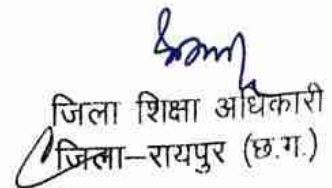 जिला शिक्षा अधिकारी
जिला-रायपुर (छ.ग.)